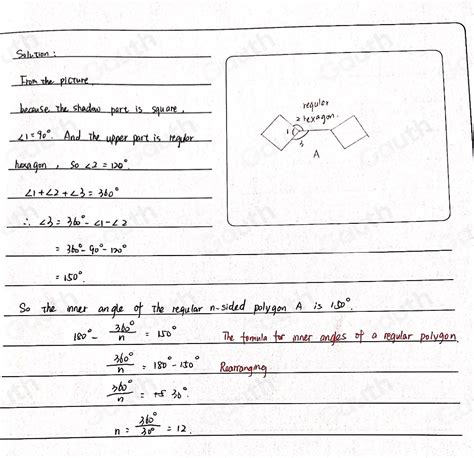 Solution:
From the picture,
because the shadow part is square,
∠1=90°. And the upper part is regular
hexagon, So ∠2=120°.
∠1+∠2+∠3=360°
∴ ∠3=360°-∠1-∠2
=360°-90°-120°
=150°.
regular
2 hexagon.
1
3
A
So the inner angle of the regular n-sided polygon A is 150°.
180°- 360°/n = 150° The fomula for inner angles of a regular polygon.
360°/n = 180°-150° Rearranging
360°/n = 30°.
n = 360°/30° = 12.
Gauth